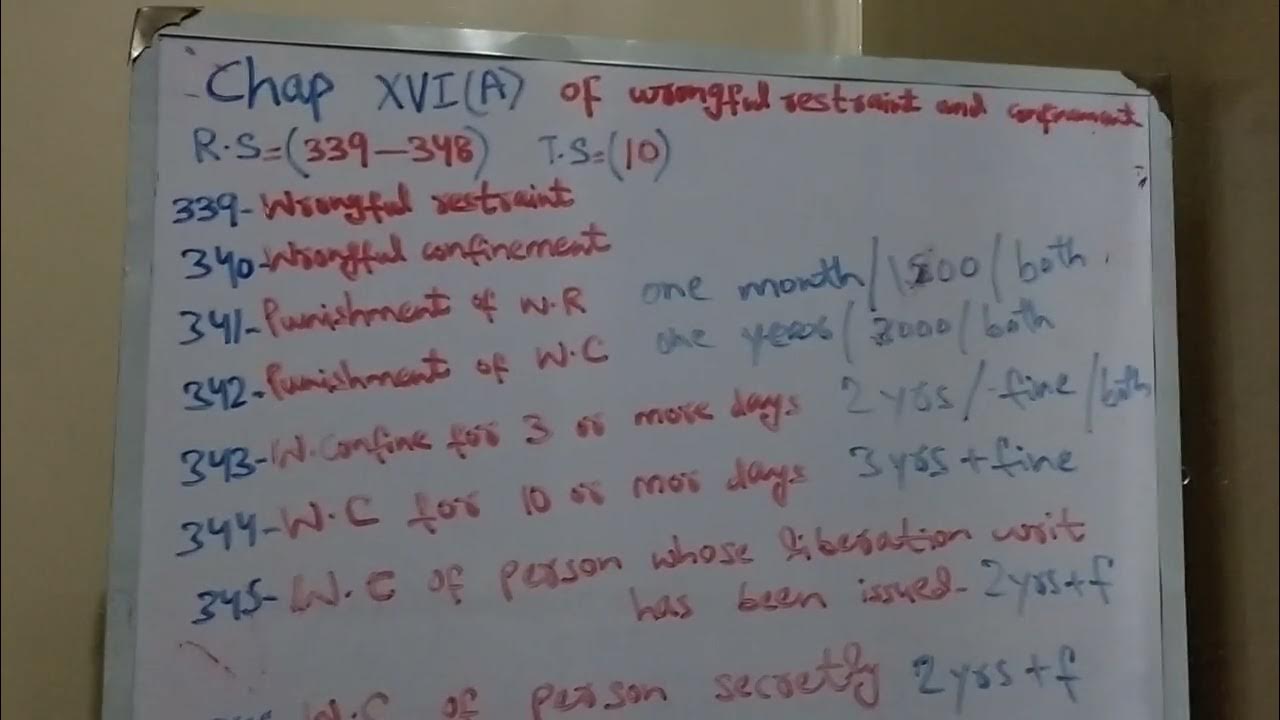 Chap XVI(A) of wrongful restraint and confinement
R.S=(339-348) T.S=(10)
339-Wrongful restraint
340-Wrongful confinement
341-Punishment of W.R one month/1500/both.
342-Punishment of W.C one years/3000/both
343-W.confine for 3 or more days 2yrs/-fine/both
344-W.C for 10 or mor days 3yrs+fine
345-W.C of person whose liberation writ
has been issued-2yrs+f
W.C of person secretly 2yrs+f